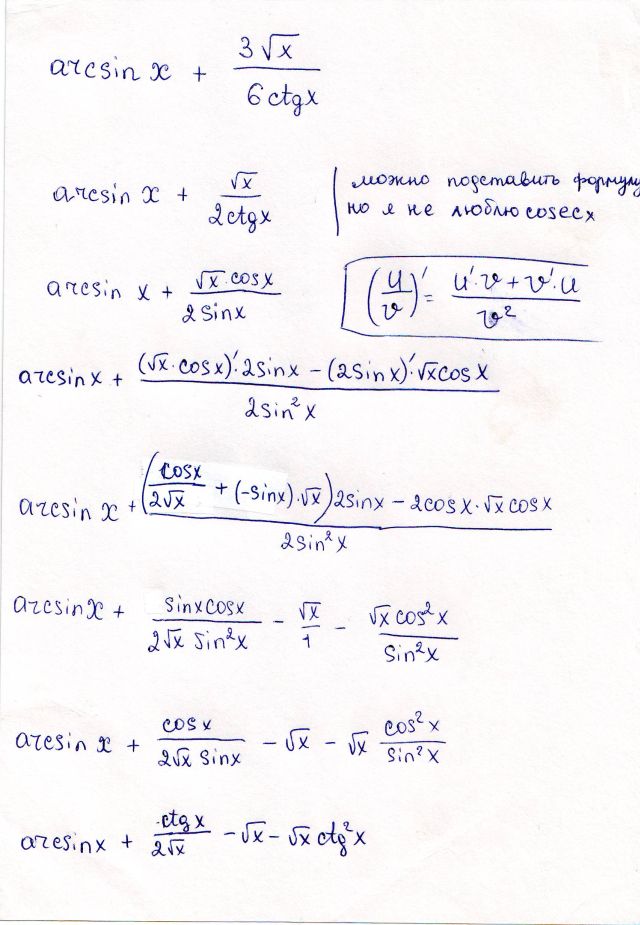 arcsin x + 3√x / 6 ctgx
arcsin x + √x / 2ctgx
можно подставить формулу
но я не люблю cosecx
arcsin x + √x · cosx / 2sinx
(u/v)' = u'·v + v'·u / v²
arcsinx + (√x · cosx)'·2sinx − (2sinx)'·√x cosx / 2sin²x
arcsin x + (cosx / 2√x + (−sinx)·√x) 2sinx − 2cosx·√x cosx / 2sin²x
arcsinx + sinxcosx / 2√x sin²x − √x / 1 − √x cos²x / sin²x
arcsin x + cosx / 2√x sinx − √x − √x cos²x / sin²x
arcsinx + ctgx / 2√x − √x − √x ctg²x